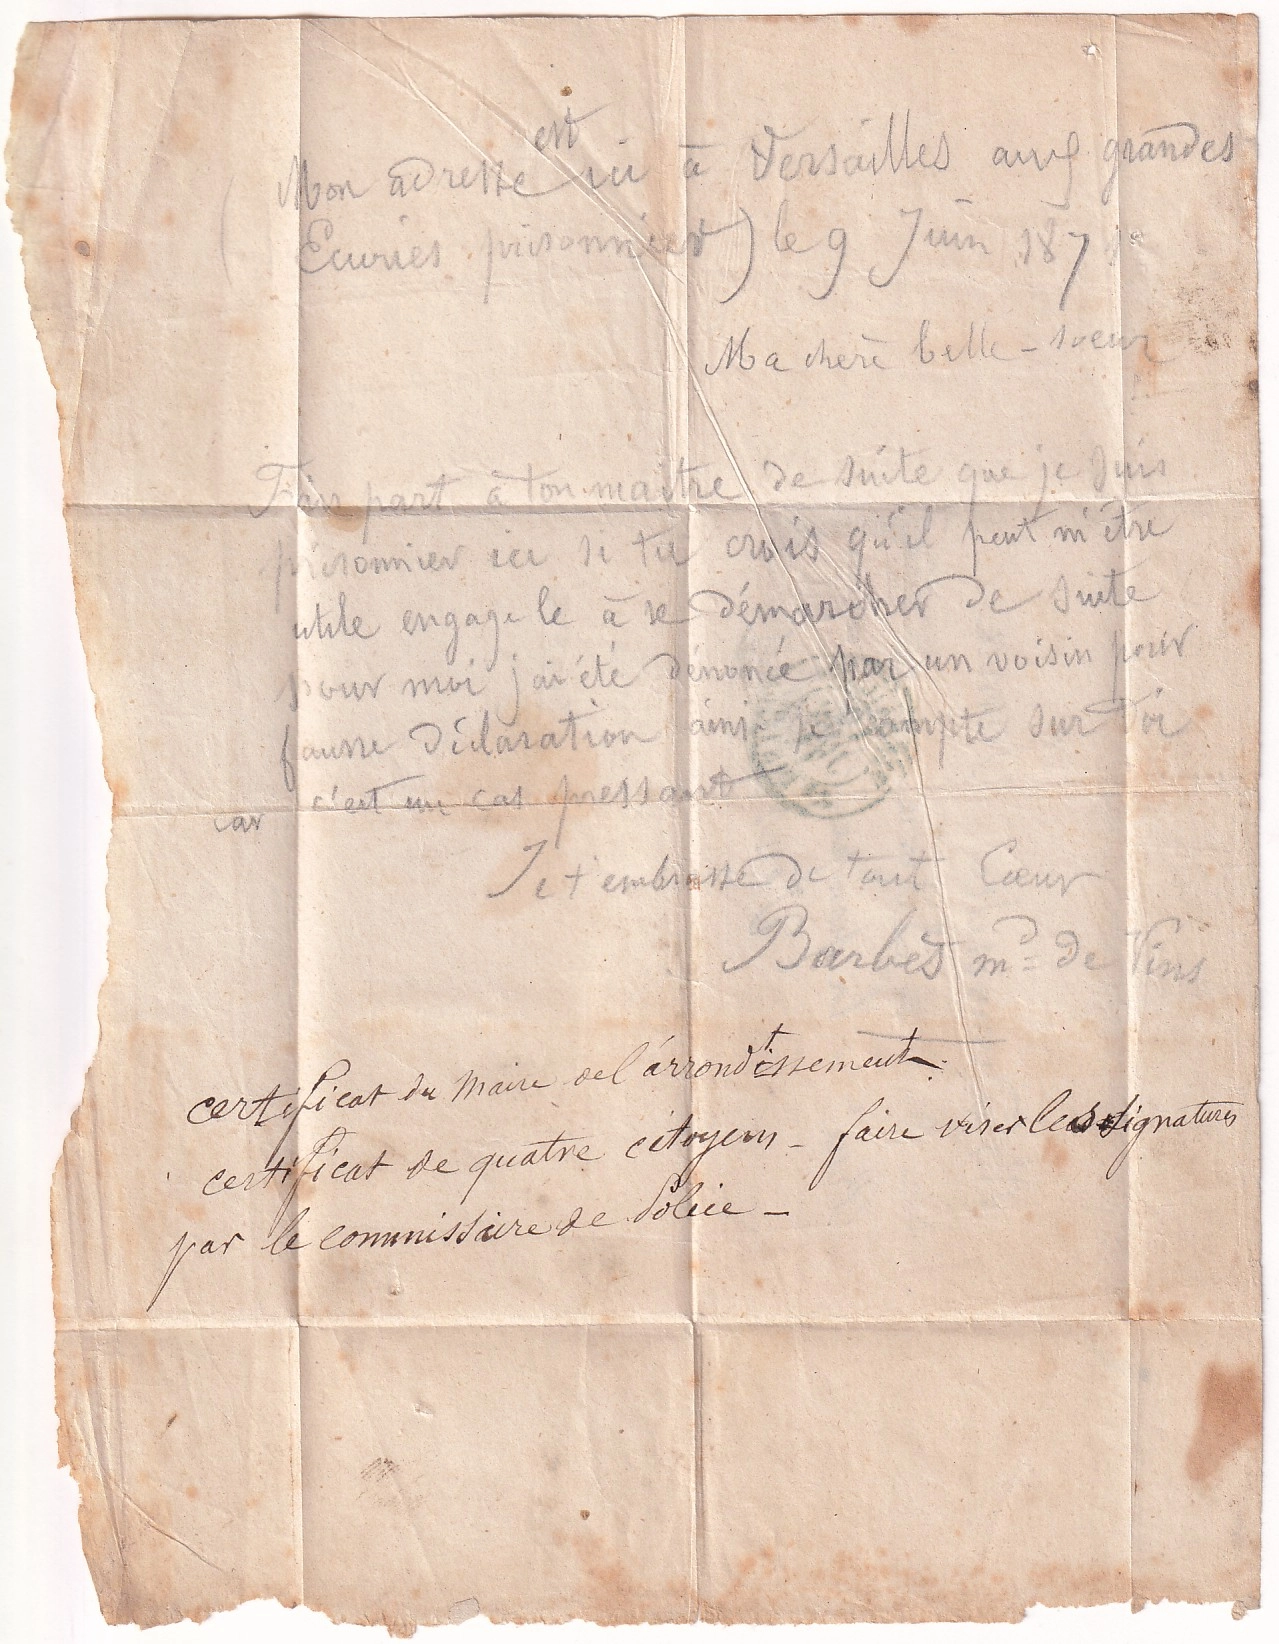 est
(Mon adresse ici à Versailles aux grandes
Ecuries prisonnier) le 9 Juin 1871
Ma chere belle-soeur
Fais part à ton maitre de suite que je suis
prisonnier ici si tu crois qu'il peut m'être
utile engage le à se démarcher de suite
pour moi j'ai été dénoncé par un voisin pour
fausse déclaration ainsi je compte sur toi
car c'est un cas pressant
Je t'embrasse de tout Coeur
Barbet md de Vins
certificat du Maire de l'arrondissement.
certificat de quatre citoyens - faire viser les signatures
par le commissaire de Police -